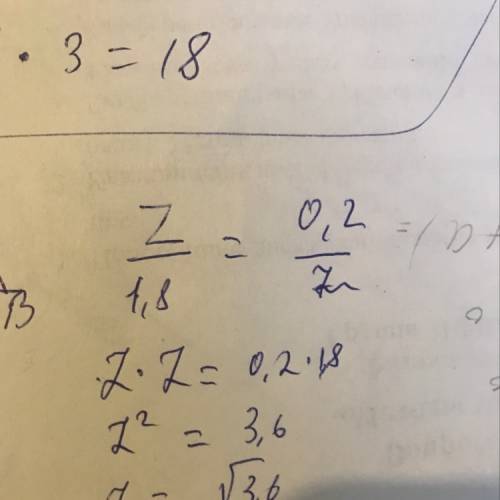 · 3 = 18
Z/1,8 = 0,2/Z
Z · Z = 0,2 · 1,8
Z² = 3,6
Z = √3,6